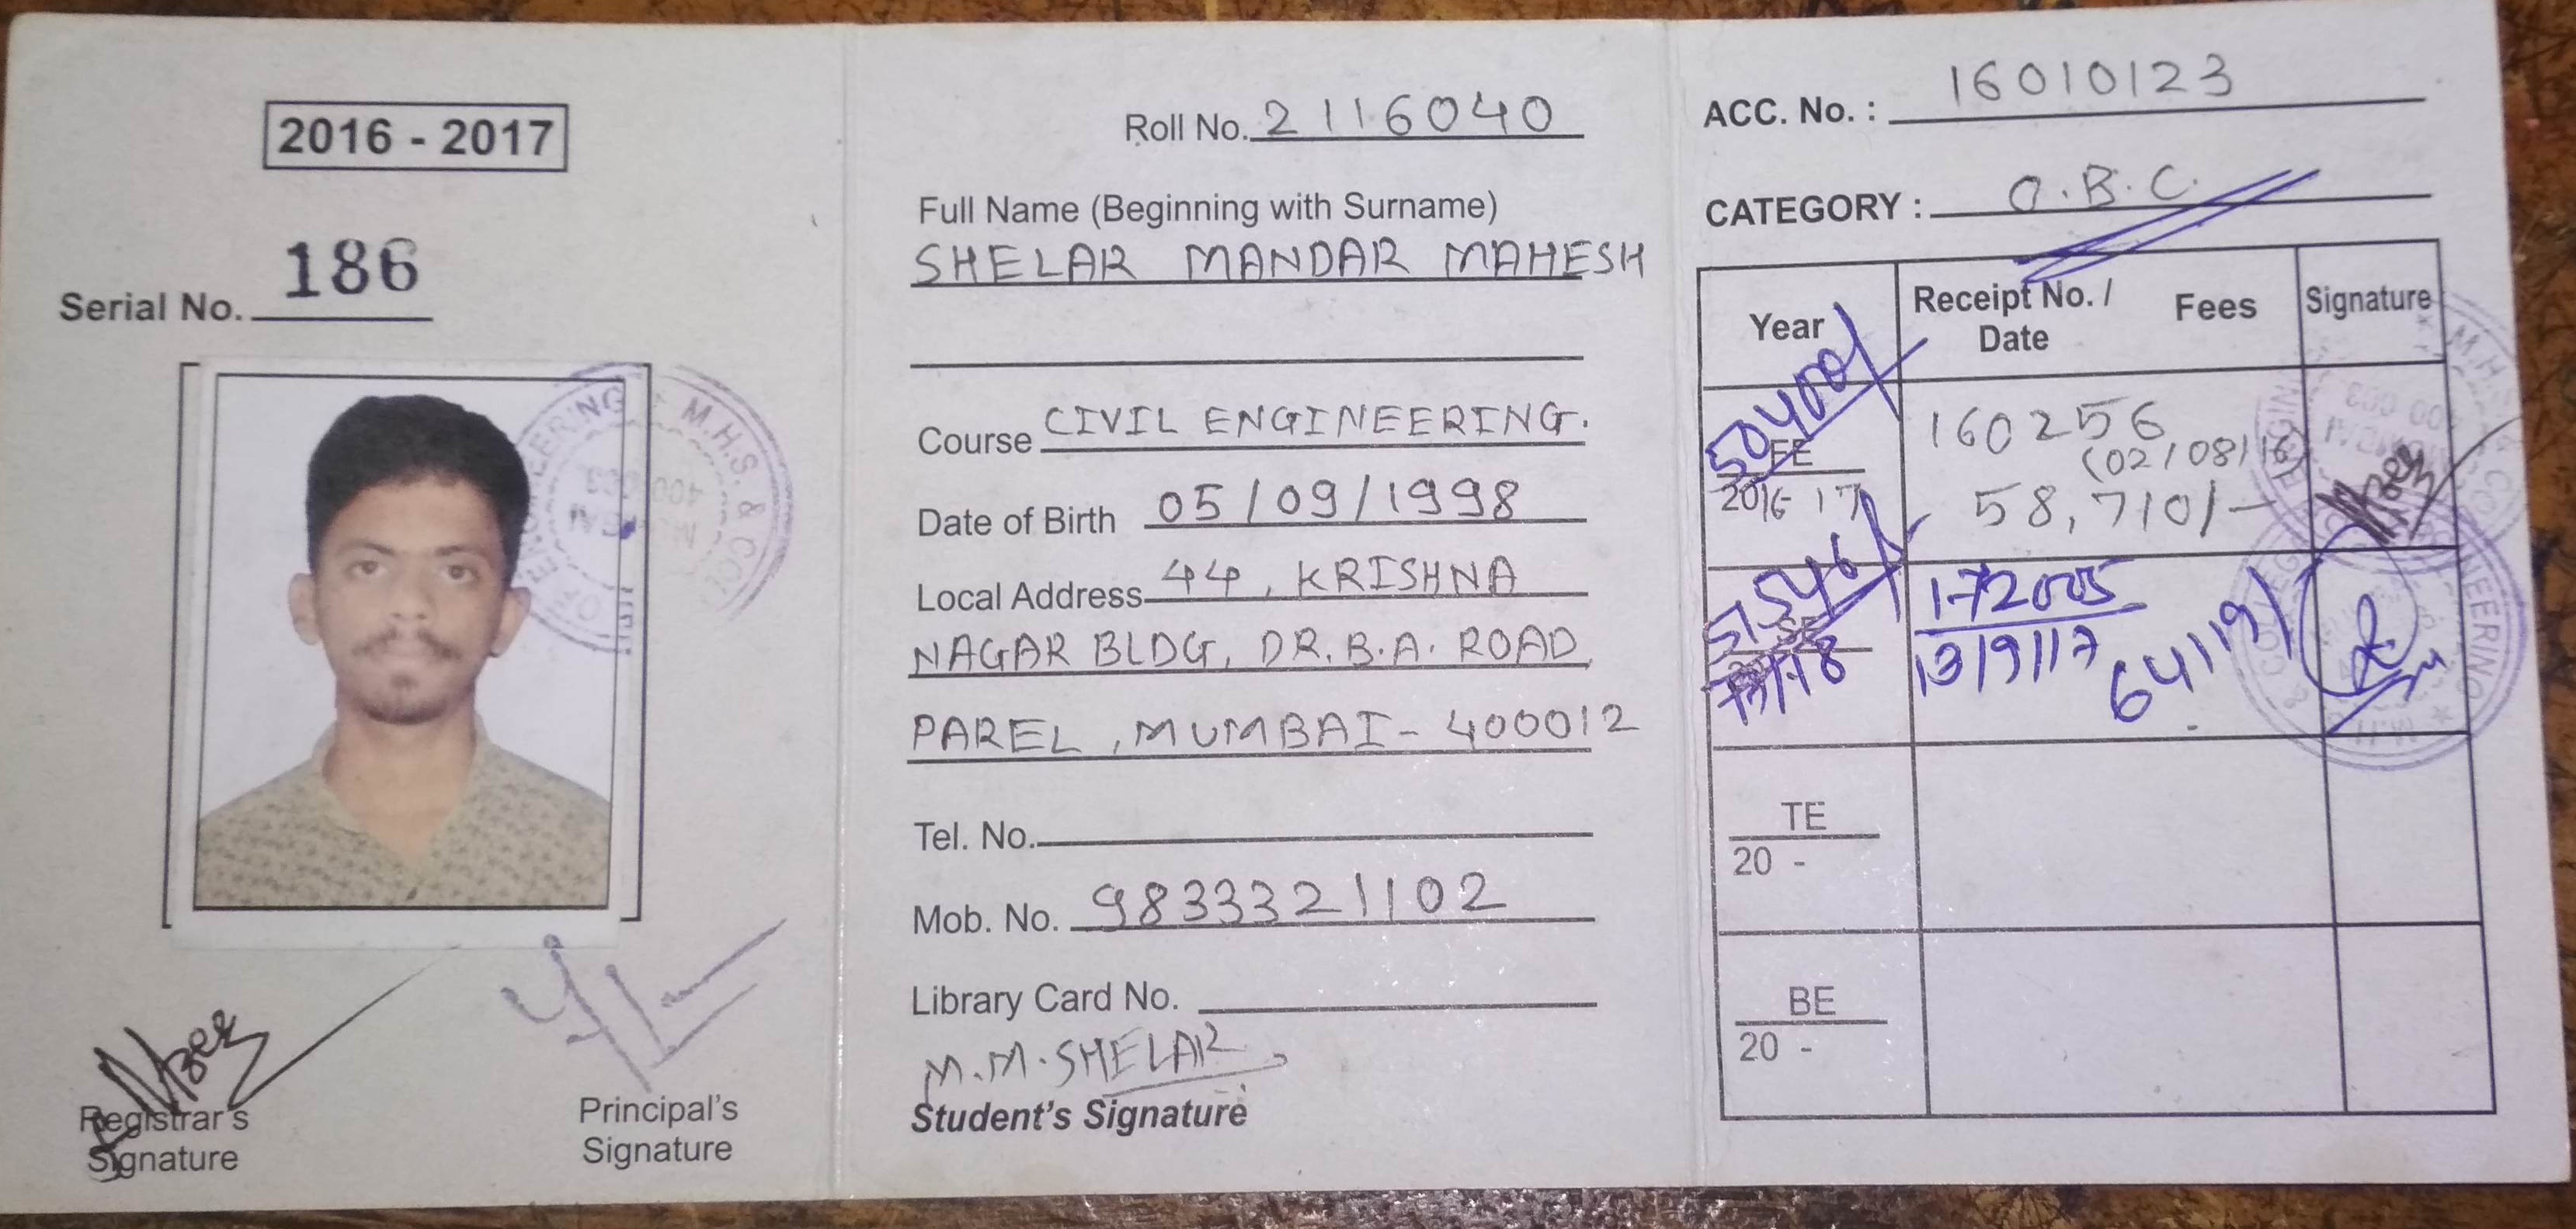 2016 - 2017
Serial No. 186
Registrar's
Signature
Principal's
Signature
Roll No. 2116040
Full Name (Beginning with Surname)
SHELAR MANDAR MAHESH
Course CIVIL ENGINEERING.
Date of Birth 05/09/1998
Local Address 44, KRISHNA
NAGAR BLDG, DR. B.A. ROAD,
PAREL, MUMBAI - 400012
Tel. No.
Mob. No. 9833321102
Library Card No.
M.M. SHELAR
Student's Signature
ACC. No. : 16010123
CATEGORY : O.B.C.
Year
Receipt No. /
Date
Fees
Signature
50400/
FE
2016-17
160256
(02/08/16)
58,710/-
51546/
SE
17-18
13/9/17
64119/
TE
20 -
BE
20 -
ENGINEERING
M.H.S. &